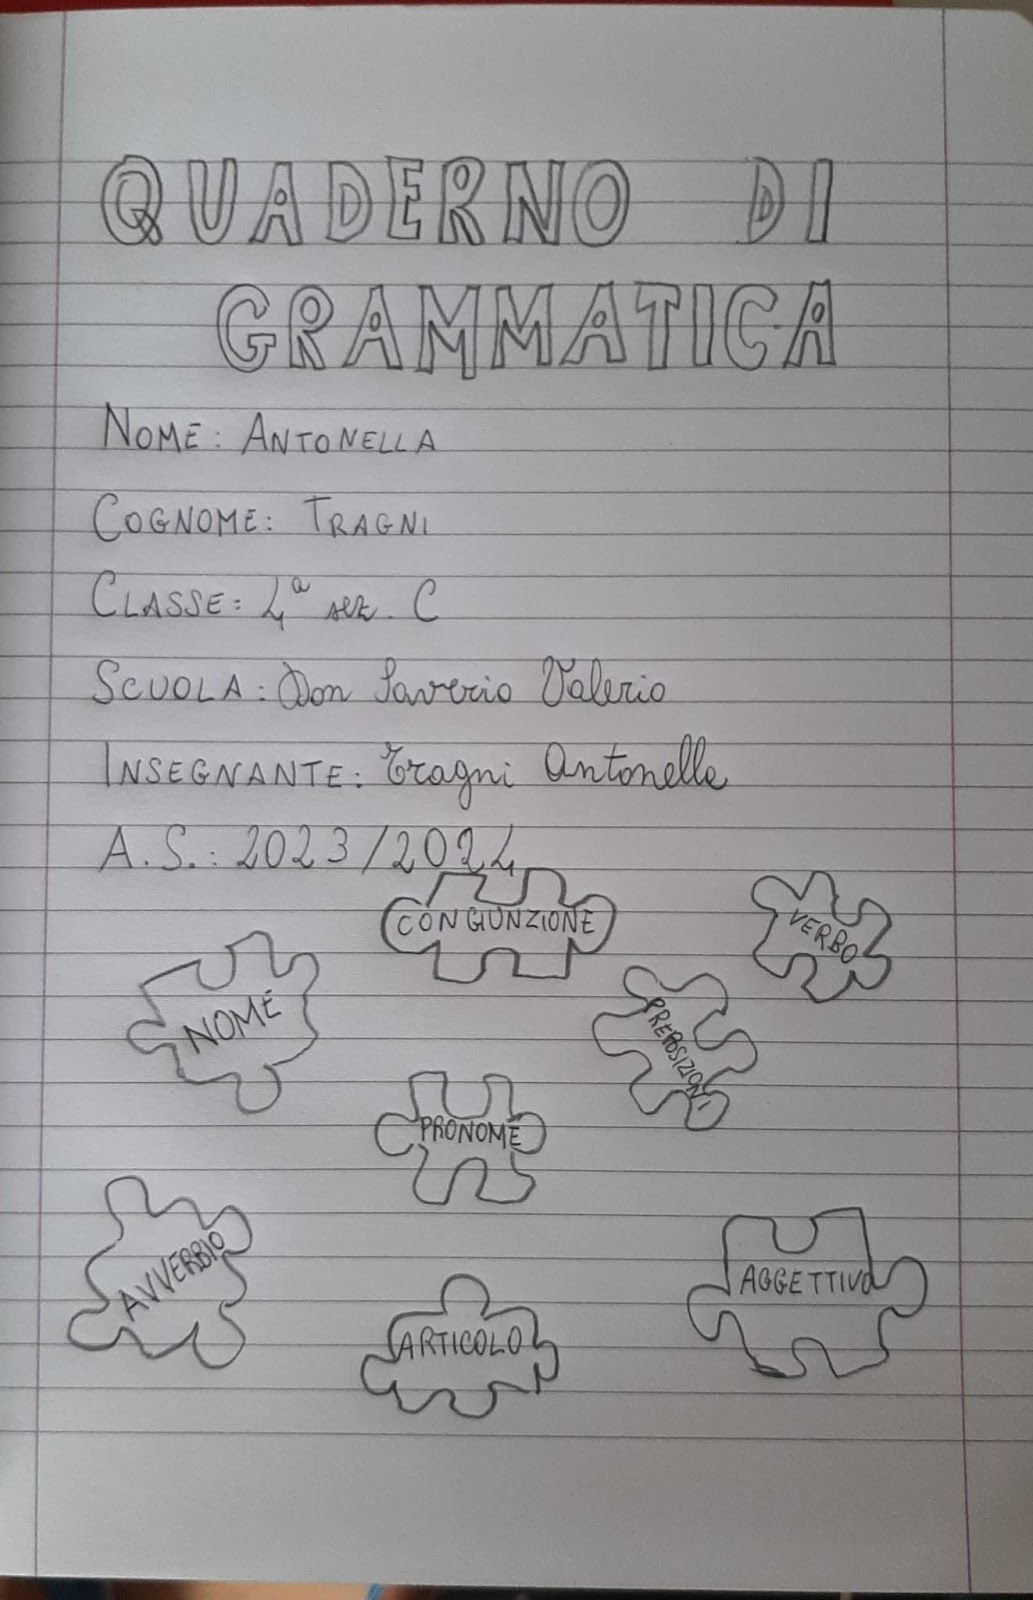 QUADERNO DI
GRAMMATICA
NOME: ANTONELLA
COGNOME: TRAGNI
CLASSE: 4ª sez. C
SCUOLA: Don Saverio Valerio
INSEGNANTE: Tragni Antonella
A.S.: 2023/2024
CONGIUNZIONE
VERBO
NOME
PREPOSIZIONI
PRONOME
AVVERBIO
AGGETTIVO
ARTICOLO